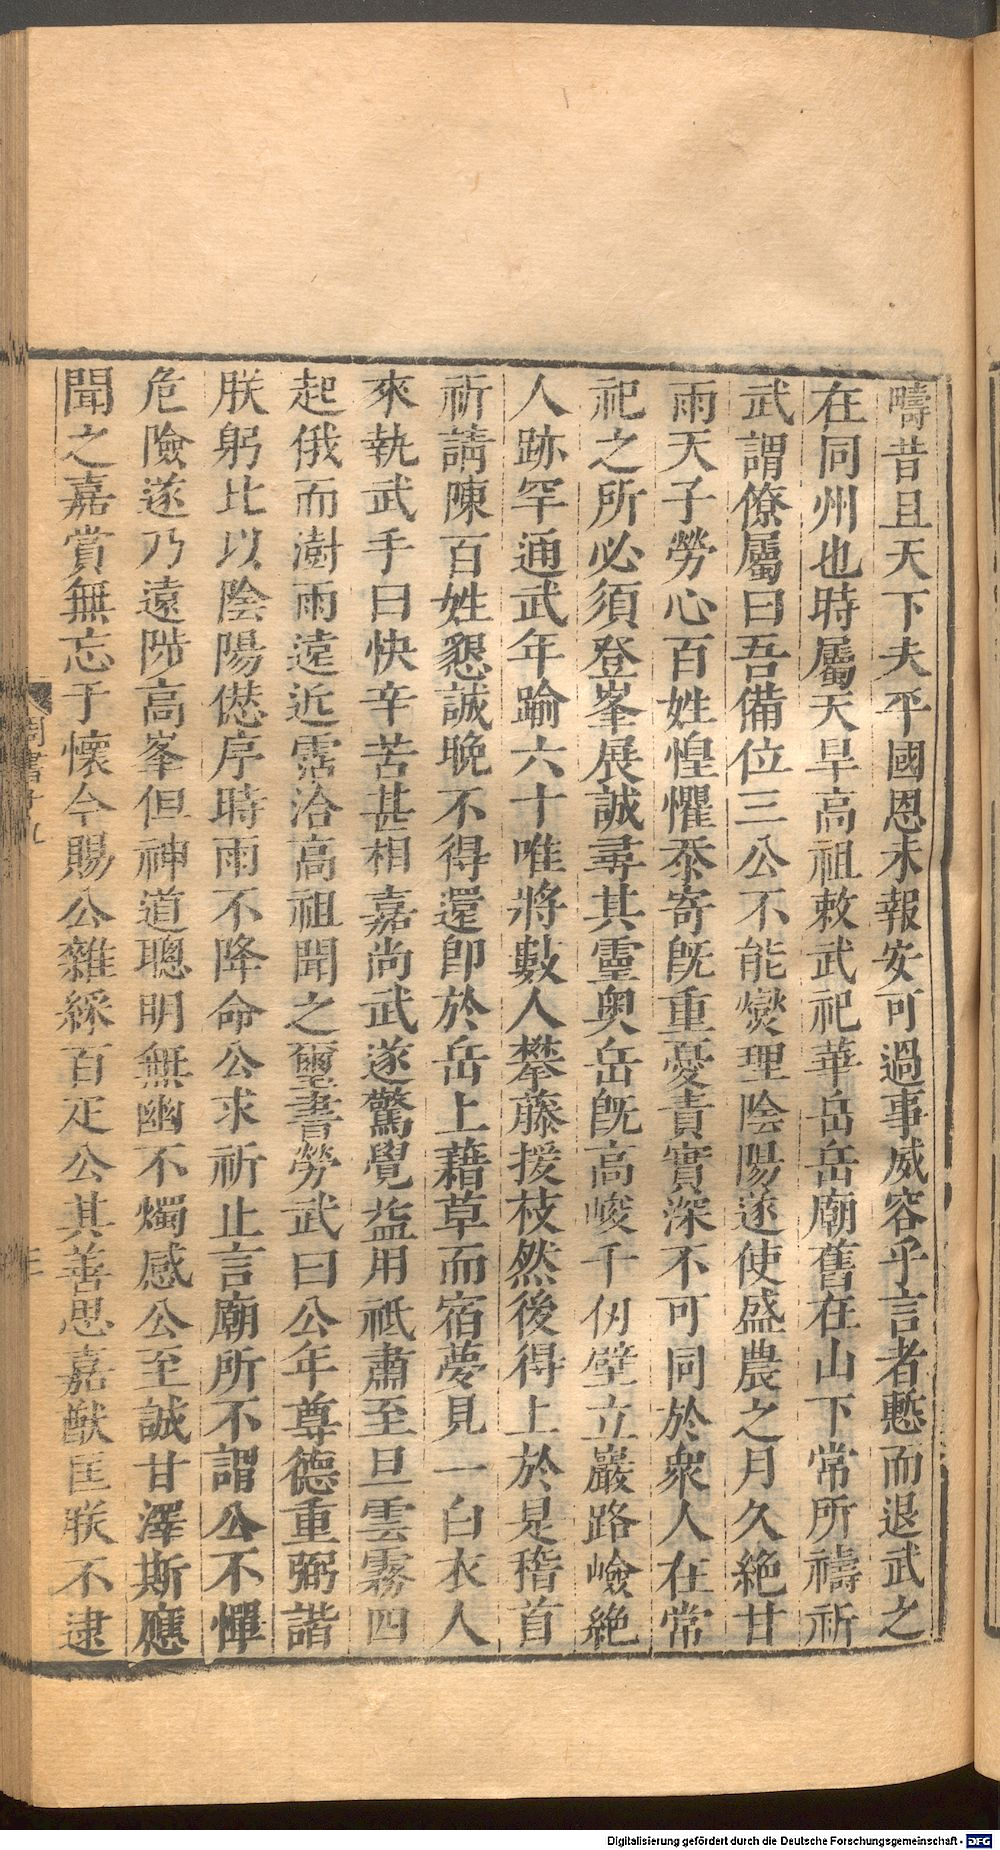 疇昔且天下未平國恩未報安可過事威容乎言者慙而退武之
在同州也時屬天旱高祖敕武祀華岳岳廟舊在山下常所禱祈
武謂僚屬曰吾備位三公不能燮理陰陽遂使盛農之月久絶甘
雨天子勞心百姓惶懼忝寄旣重憂責實深不可同於衆人在常
祀之所必須登峯展誠尋其靈奥岳旣高峻千仞壁立巖路嶮絶
人跡罕通武年踰六十唯將數人攀藤援枝然後得上於是稽首
祈請陳百姓懇誠晚不得還卽於岳上藉草而宿夢見一白衣人
來執武手曰快辛苦甚相嘉尚武遂驚覺益用祗肅至旦雲霧四
起俄而澍雨遠近霑洽高祖聞之璽書勞武曰公年尊德重弼諧
朕躬比以陰陽愆序時雨不降命公求祈止言廟所不謂公不憚
危險遂乃遠陟高峯但神道聰明無幽不燭感公至誠甘澤斯應
聞之嘉賞無忘于懷今賜公雜綵百疋公其善思嘉猷匡朕不逮
Digitalisierung gefördert durch die Deutsche Forschungsgemeinschaft - DFG